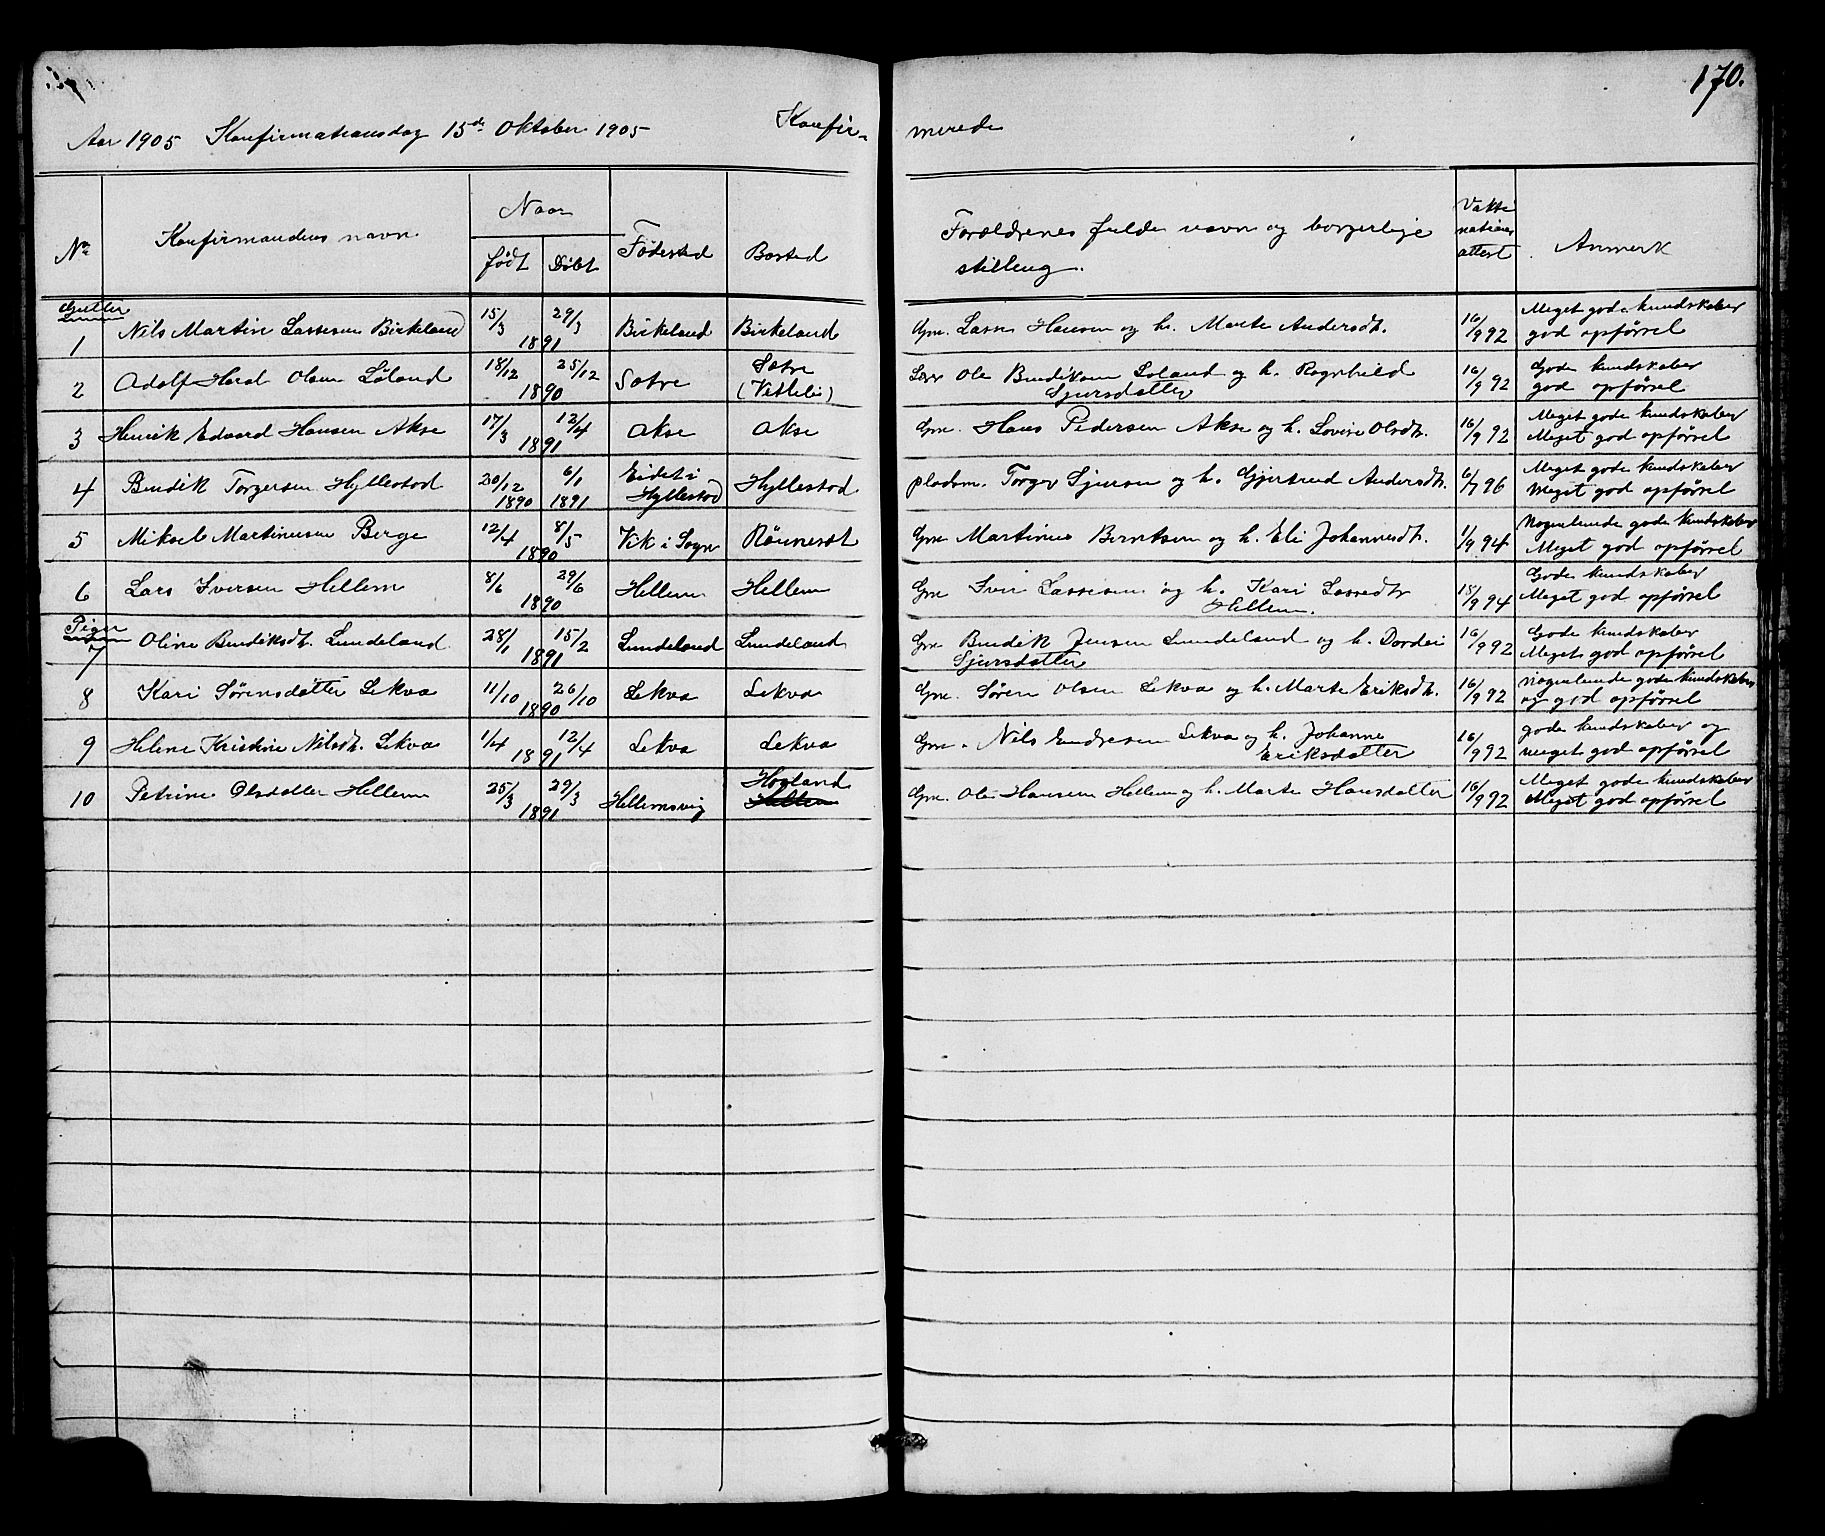 170.
Aar 1905 Konfirmationsdag 15de Oktober 1905 Konfir-merede
No Konfirmandens navn Naar født Døbt Fødested Bosted Forældrenes fulde navn og borgerlige stilling. Vaksinationsattest Anmerk
Gutter
1 Nils Martin Lassesen Birkeland 15/3 29/3 1891 Birkeland Birkeland Gm. Lasse Hansen og h. Marte Andersdt. 16/9 92 Meget gode kundskaber god opførsel
2 Adolf Olsen Løland 18/12 25/12 1890 Sætre Sætre (Vetlelii) Ole Bendiksen Løland og h. Ragnhild Sjursdatter 16/9 92 Gode kundskaber god opførsel
3 Henrik Edvard Hansen Akse 17/3 12/4 1891 Akse Akse Gm. Hans Pedersen Akse og h. Lovise Olsdt. 16/9 92 Meget gode kundskaber Meget god opførsel
4 Bendik Torgersen Hyllestad 20/12 1890 6/1 1891 Eidet i Hyllestad Hyllestad pladsm. Torger Sjursen og h. Gjertrud Andersdt. 6/7 96 Meget gode kundskaber Meget god opførsel
5 Mikael Martinusen Berge 12/4 8/5 1890 Vik i Sogn Rønneset Gm Martinus Berntsen og h. Eli Johannesdt. 1/9 94 Nogenlunde gode kundskaber Meget god opførsel
6 Lars Iversen Hellem 8/6 29/6 1890 Hellem Hellem Gm Iver Lassesen og h. Kari Lassedtr Hellem. 15/9 94 Gode kundskaber Meget god opførsel
Piger
7 Oline Bendiksdt. Lundeland 28/1 15/2 1891 Lundeland Lundeland Gm Bendik Jensen Lundeland og h. Dordei Sjursdatter 16/9 92 Gode kundskaber Meget god opførsel
8 Kari Sørensdatter Lekva 11/10 26/10 1890 Lekva Lekva Gm. Søren Olsen Lekva og h. Marte Eriksdt. 16/9 92 Nogenlunde gode kundskaber og god opførsel
9 Heline Kristine Nilsdt. Lekva 1/4 12/4 1891 Lekva Lekva Gm. Nils Endresen Lekva og h. Johanne Eriksdatter 16/9 92 gode kundskaber og meget god opførsel
10 Petrine Olsdatter Hellem 25/3 29/3 1891 Hellemsvig Hogland Hellem Gm. Ole Hansen Hellem og h. Marte Hansdatter 16/9 92 Meget gode kundskaber Meget god opførsel